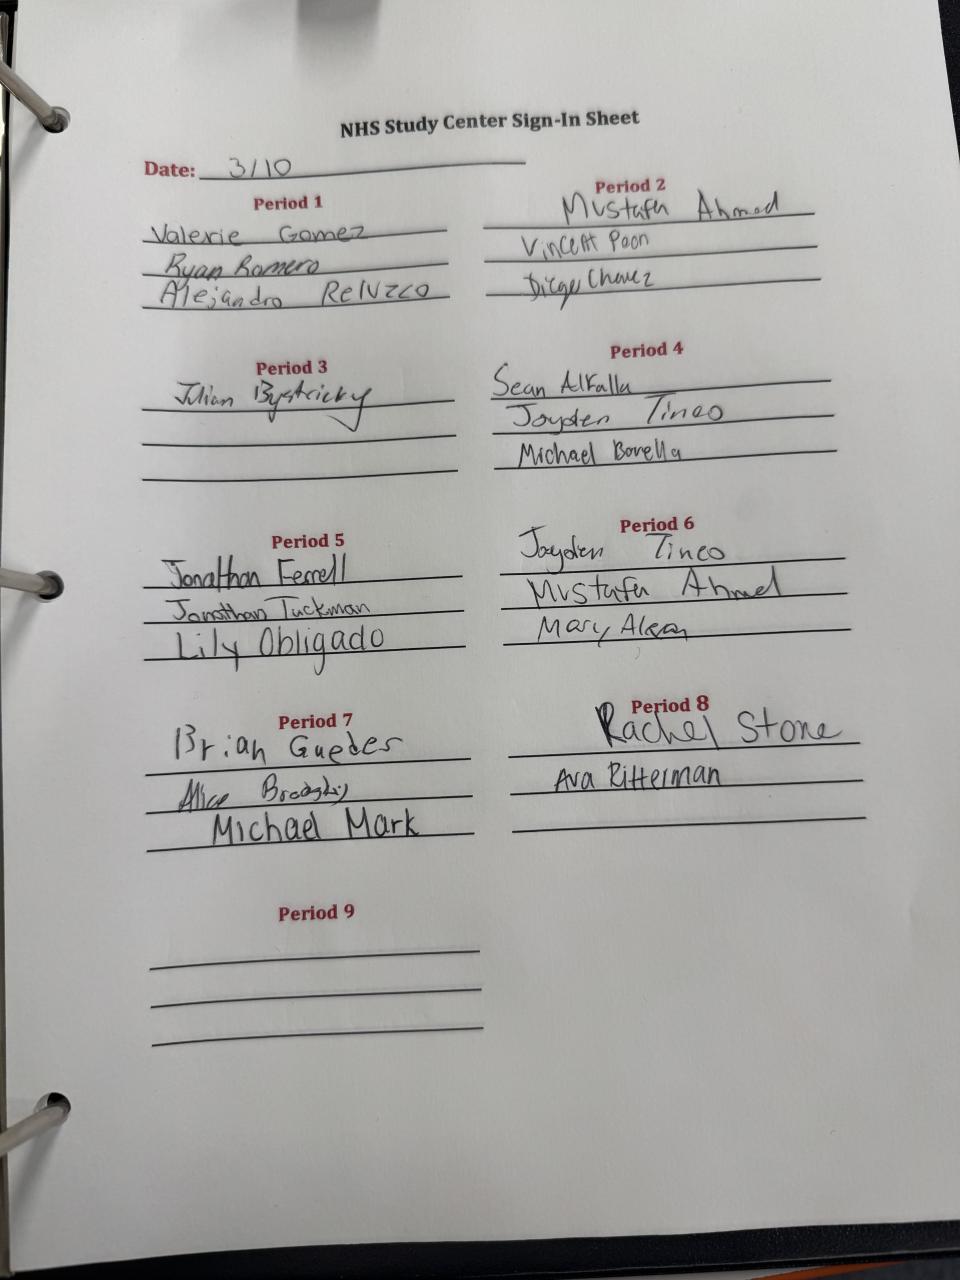 NHS Study Center Sign-In Sheet
Date: 3/10
Period 1
Valerie Gomez
Ryan Romero
Alejandro Reluzco
Period 2
Mustafa Ahmed
Vincent Poon
Diego Chavez
Period 3
Julian Bystricky
Period 4
Sean Alfalla
Jayden Tineo
Michael Borella
Period 5
Jonathan Ferrell
Jonathan Tuckman
Lily Obligado
Period 6
Jayden Tineo
Mustafa Ahmed
Mary
Period 7
Brian Guedes
Alice
Michael Mark
Period 8
Rachel Stone
Ava Ritterman
Period 9